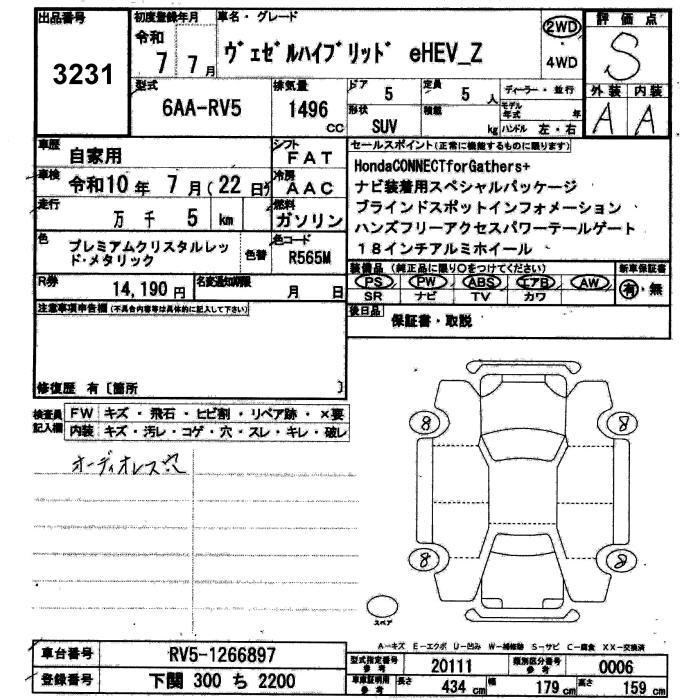 出品番号
3231
初度登録年月
令和
7 7月
車名・グレード
ヴェゼルハイブリッド eHEV_Z
2WD
4WD
評価点
S
外装 内装
A A
型式
6AA-RV5
排気量
1496
cc
ドア
5
定員
5 人
形状
SUV
積載
kg
ディーラー・並行
モデル年式 年
ハンドル 左・右
車歴
自家用
シフト
FAT
車検
令和10年 7月(22日)
冷房
AAC
走行
万 千 5 km
燃料
ガソリン
色
プレミアムクリスタルレッ
ド・メタリック
色替
色コード
R565M
R券
14,190円
名変通知期限
月 日
セールスポイント(正常に機能するものに限ります)
HondaCONNECTforGathers+
ナビ装着用スペシャルパッケージ
ブラインドスポットインフォメーション
ハンズフリーアクセスパワーテールゲート
18インチアルミホイール
装備品(純正品に限り○をつけてください)
PS PW ABS エアB AW
SR ナビ TV カワ
新車保証書
有・無
後日品
保証書・取説
注意事項申告欄(不具合内容等は具体的に記入して下さい)
修復歴 有〔箇所 〕
検査員
記入欄
FW キズ・飛石・ヒビ割・リペア跡・×要
内装 キズ・汚レ・コゲ・穴・スレ・キレ・破レ
オーディオレス穴
8 8
8 8
スペア
A-キズ E-エクボ U-凹み W-補修跡 S-サビ C-腐食 XX-交換済
車台番号
RV5-1266897
登録番号
下関 300 ち 2200
型式指定番号
参考
20111
類別区分番号
参考
0006
車庫証明用
参考
長さ
434 cm
幅
179 cm
高さ
159 cm